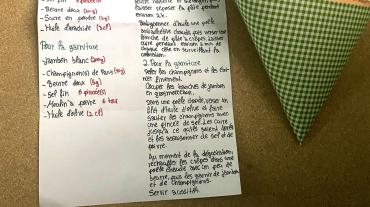 - Beurre doux (20g)
- Sucre en poudre (5g)
- Huile d'arachide (3cl)
Pour la garniture
- Jambon blanc (200g)
- Champignon(s) de Paris (100g)
- Beurre doux (5g)
- Sel fin 6 pincée(s)
- Moulin à poivre 6 tour
- Huile d'olive (2 cl)
laisser reposer la pâte pendant
environ 2 h.
antiadhésive chaude, puis verser une
louche de pâte à crêpes. Laisser
cuire pendant environ 2 min de
chaque côté en surveillant la
coloration.
2. Pour la garniture
Laver les champignons et les émincer
finement.
Couper les tranches de jambon
en gros morceaux.
Dans une poêle chaude, verser un
filet d'huile d'olive et faire
sauter les champignons avec
une pincée de sel. Les cuire
jusqu'à ce qu'ils soient dorés
et les assaisonner de sel et de
poivre.
Au moment de la dégustation,
réchauffer les crêpes dans une
poêle chaude avec un peu de
beurre, puis les garnir de jambon
et de champignons.
Servir aussitôt.